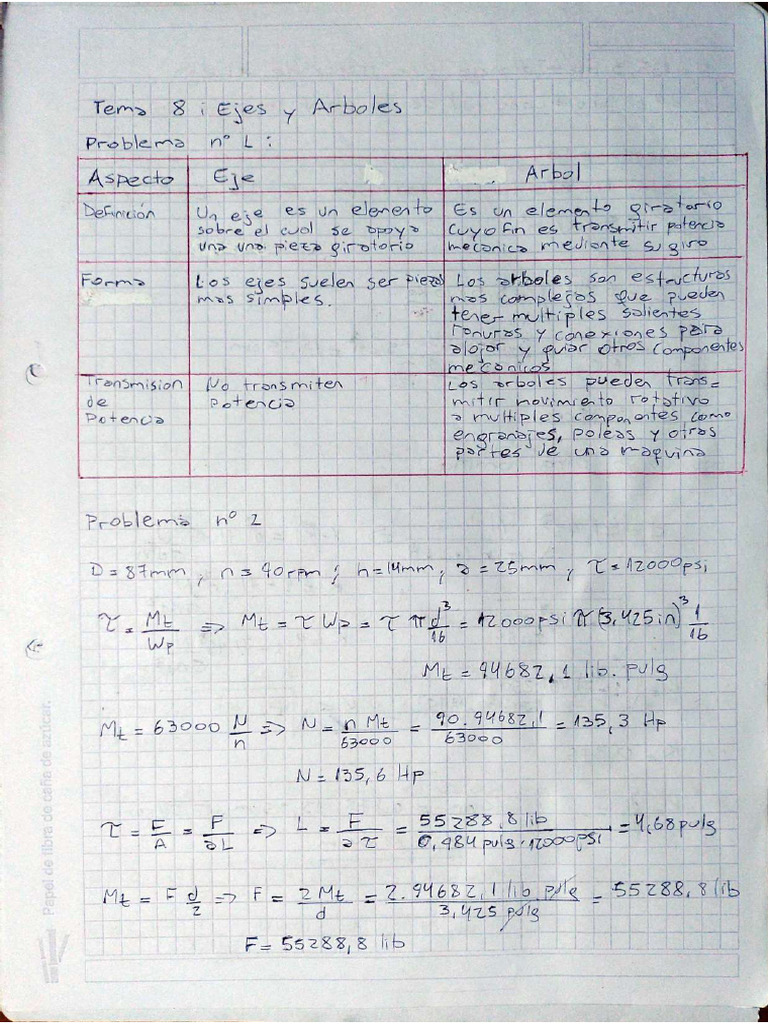 Tema 8 : Ejes y Arboles
Problema n° 1 :
Aspecto Eje Arbol
Definición
Un eje es un elemento
sobre el cual se apoya
una una pieza giratorio
Es un elemento giratorio
cuyo fin es transmitir potencia
mecanica mediante su giro
Forma
Los ejes suelen ser piezas
mas simples.
Los arboles son estructuras
mas complejos que pueden
tener multiples salientes
ranuras y conexiones para
alojar y guiar otros componentes
mecanicos
Transmision
de
Potencia
No transmiten
potencia
Los arboles pueden trans=
mitir movimiento rotativo
a multiples componentes como
engranajes, poleas y otros
partes de una maquina
Problema n° 2
D = 87mm , n = 90rpm ; h = 14mm, a = 25mm , τ = 12000psi
τ = Mt/Wp => Mt = τ Wp = τ π d³/16 = 12000psi π (3,425in)³ 1/16
Mt = 94682,1 lib. pulg
Mt = 63000 N/n => N = n Mt/63000 = 90.94682,1/63000 = 135,3 Hp
N = 135,6 Hp
τ = F/A = F/aL => L = F/aτ = 55288,8 lib/0,984 pulg.12000psi = 4,68 pulg
Mt = F d/2 => F = 2Mt/d = 2.94682,1 lib pulg/3,425 pulg = 55288,8 lib
F = 55288,8 lib
Papel de fibra de caña de azúcar.